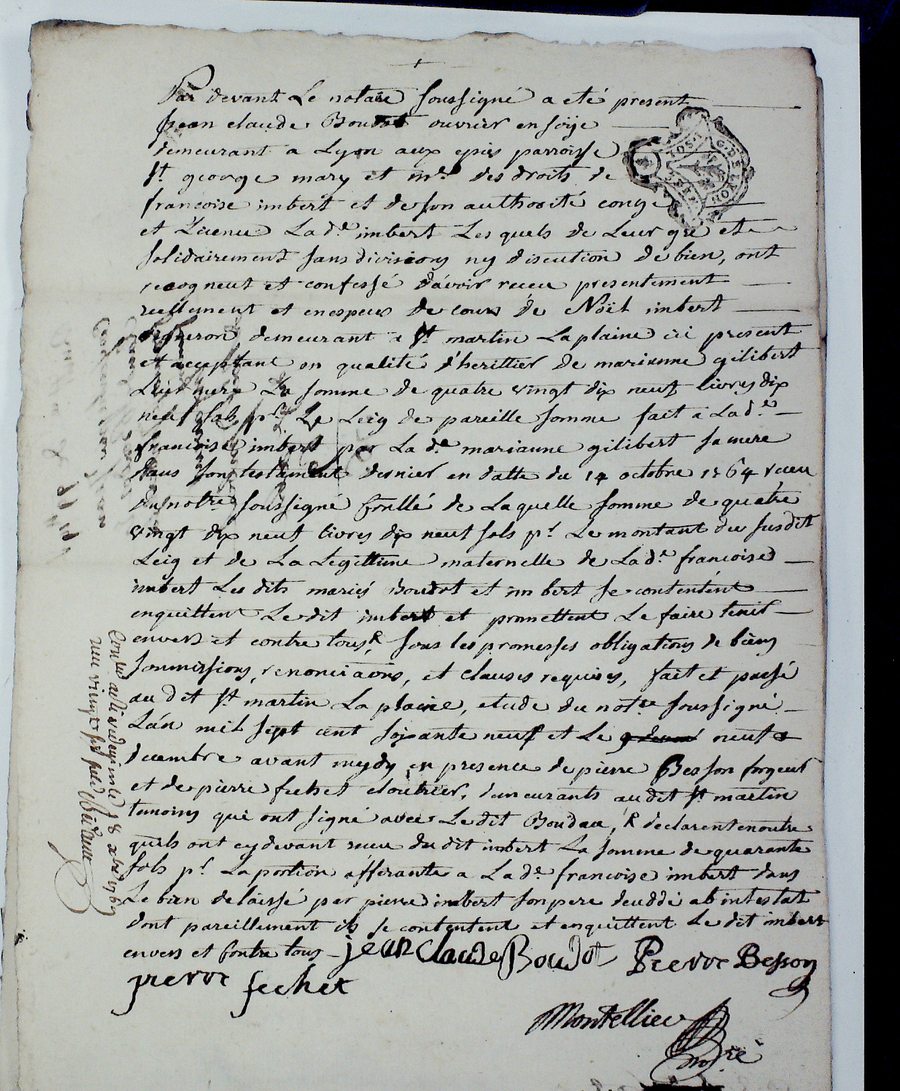 Par devant Le notaire soussigné a eté present
jean claude Boudot ouvrier en soÿe
demeurant a Lyon aux epies parroisse
st george mary et mre des droits de
francoise imbert et de son authorité conge
et Licence La de imbert Les quels de Leur gré et
solidairement sans divisions ny discution de bien, ont
recogneut et confessé d'avoir receu presentement
reellement et en especes de cours de Noël imbert
vigneron demeurant a st martin La plaine ici present
et acceptant en qualité d'heritier de marianne gilibert
Leur mere La somme de quatre vingt dix neuf livres dix
neuf sols pr Le Leig de pareille somme fait a La de
francoise imbert par La de marianne gilibert sa mere
dans son testament dernier en datte du 14 octobre 1764 receu
du notre soussigné de Laquelle somme de quatre
vingt dix neuf livres dix neuf sols pr Le montant du susdit
Leig et de La Legittime maternelle de La de francoise
imbert Les dits mariés Boudot et imbert se contentent
enquittent Le dit imbert et promettent Le faire tenir
envers et contre tous, sous les promesses obligations de biens
soumissions, renonciaons, et clauses requises, fait et passé
au dit st martin La plaine, etude du notre soussigné
L'an mil sept cent soixante neuf et Le neuf
decembre avant mydy en presence de pierre Besson forgeur
et de pierre fechet cloutrier, demeurants au dit st martin
temoins qui ont signé avec Le dit Boudau, declarent en outre
qu'ils ont cy devant receu du dit imbert La somme de quarante
sols pr La portion afferante a La de francoise imbert dans
Le bien delaissé par pierre imbert son pere deceddé ab intestat
dont pareillement ils se contentent et enquittent Le dit imbert
envers et contre tous
jean Claude Boudot Pierre Besson
pierre fechet
Montellier
nore